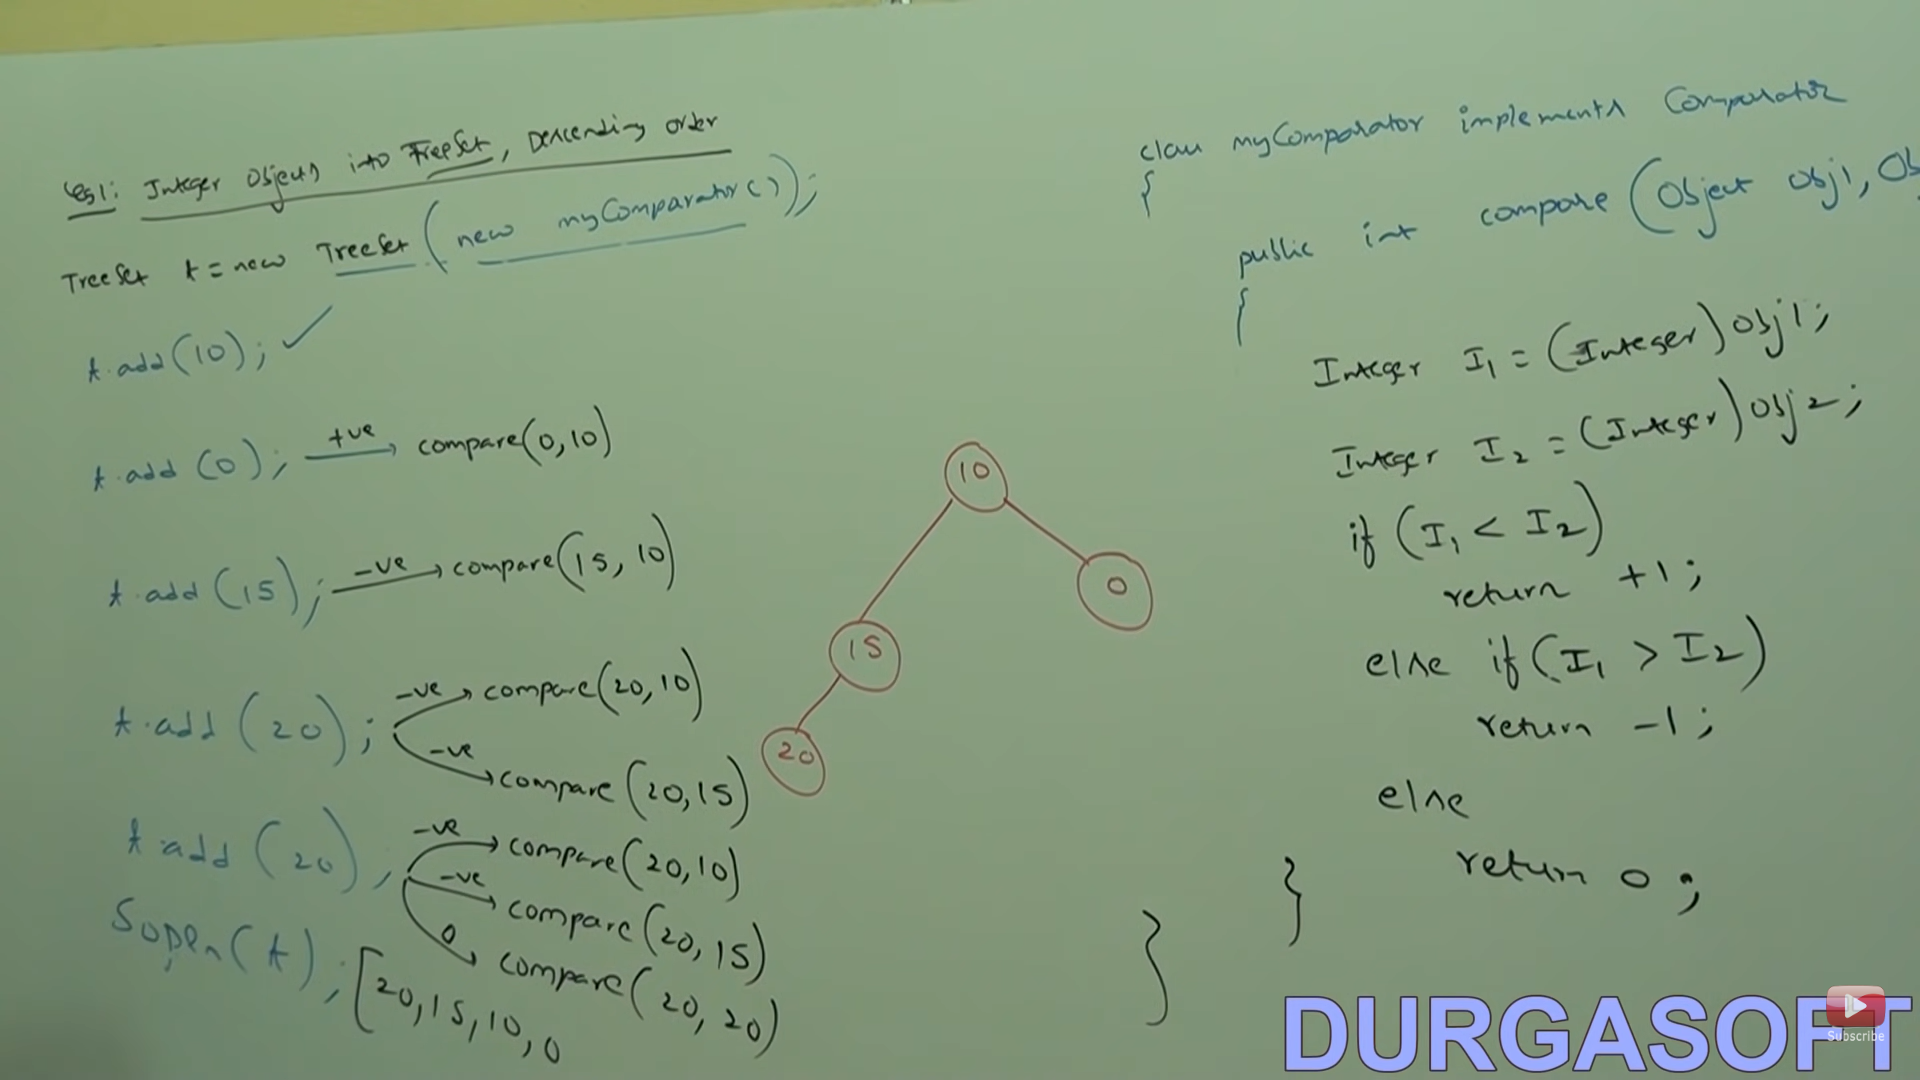 Eg1: Integer Objects into TreeSet, Descending order
TreeSet t = new TreeSet(new myComparator());
t.add(10); ✓
t.add(0); +ve → compare(0,10)
t.add(15); -ve → compare(15, 10)
t.add(20); -ve → compare(20,10)
-ve → compare(20,15)
t.add(20); -ve → compare(20,10)
-ve → compare(20, 15)
0 → compare(20, 20)
Sopln(t); [20,15,10,0
10
0
15
20
class myComparator implements Comparator
{
public int compare(Object obj1, Ob
{
Integer I1 = (Integer)obj1;
Integer I2 = (Integer)obj2;
if (I1 < I2)
return +1;
else if (I1 > I2)
return -1;
else
return 0;
}
}
DURGASOFT
Subscribe